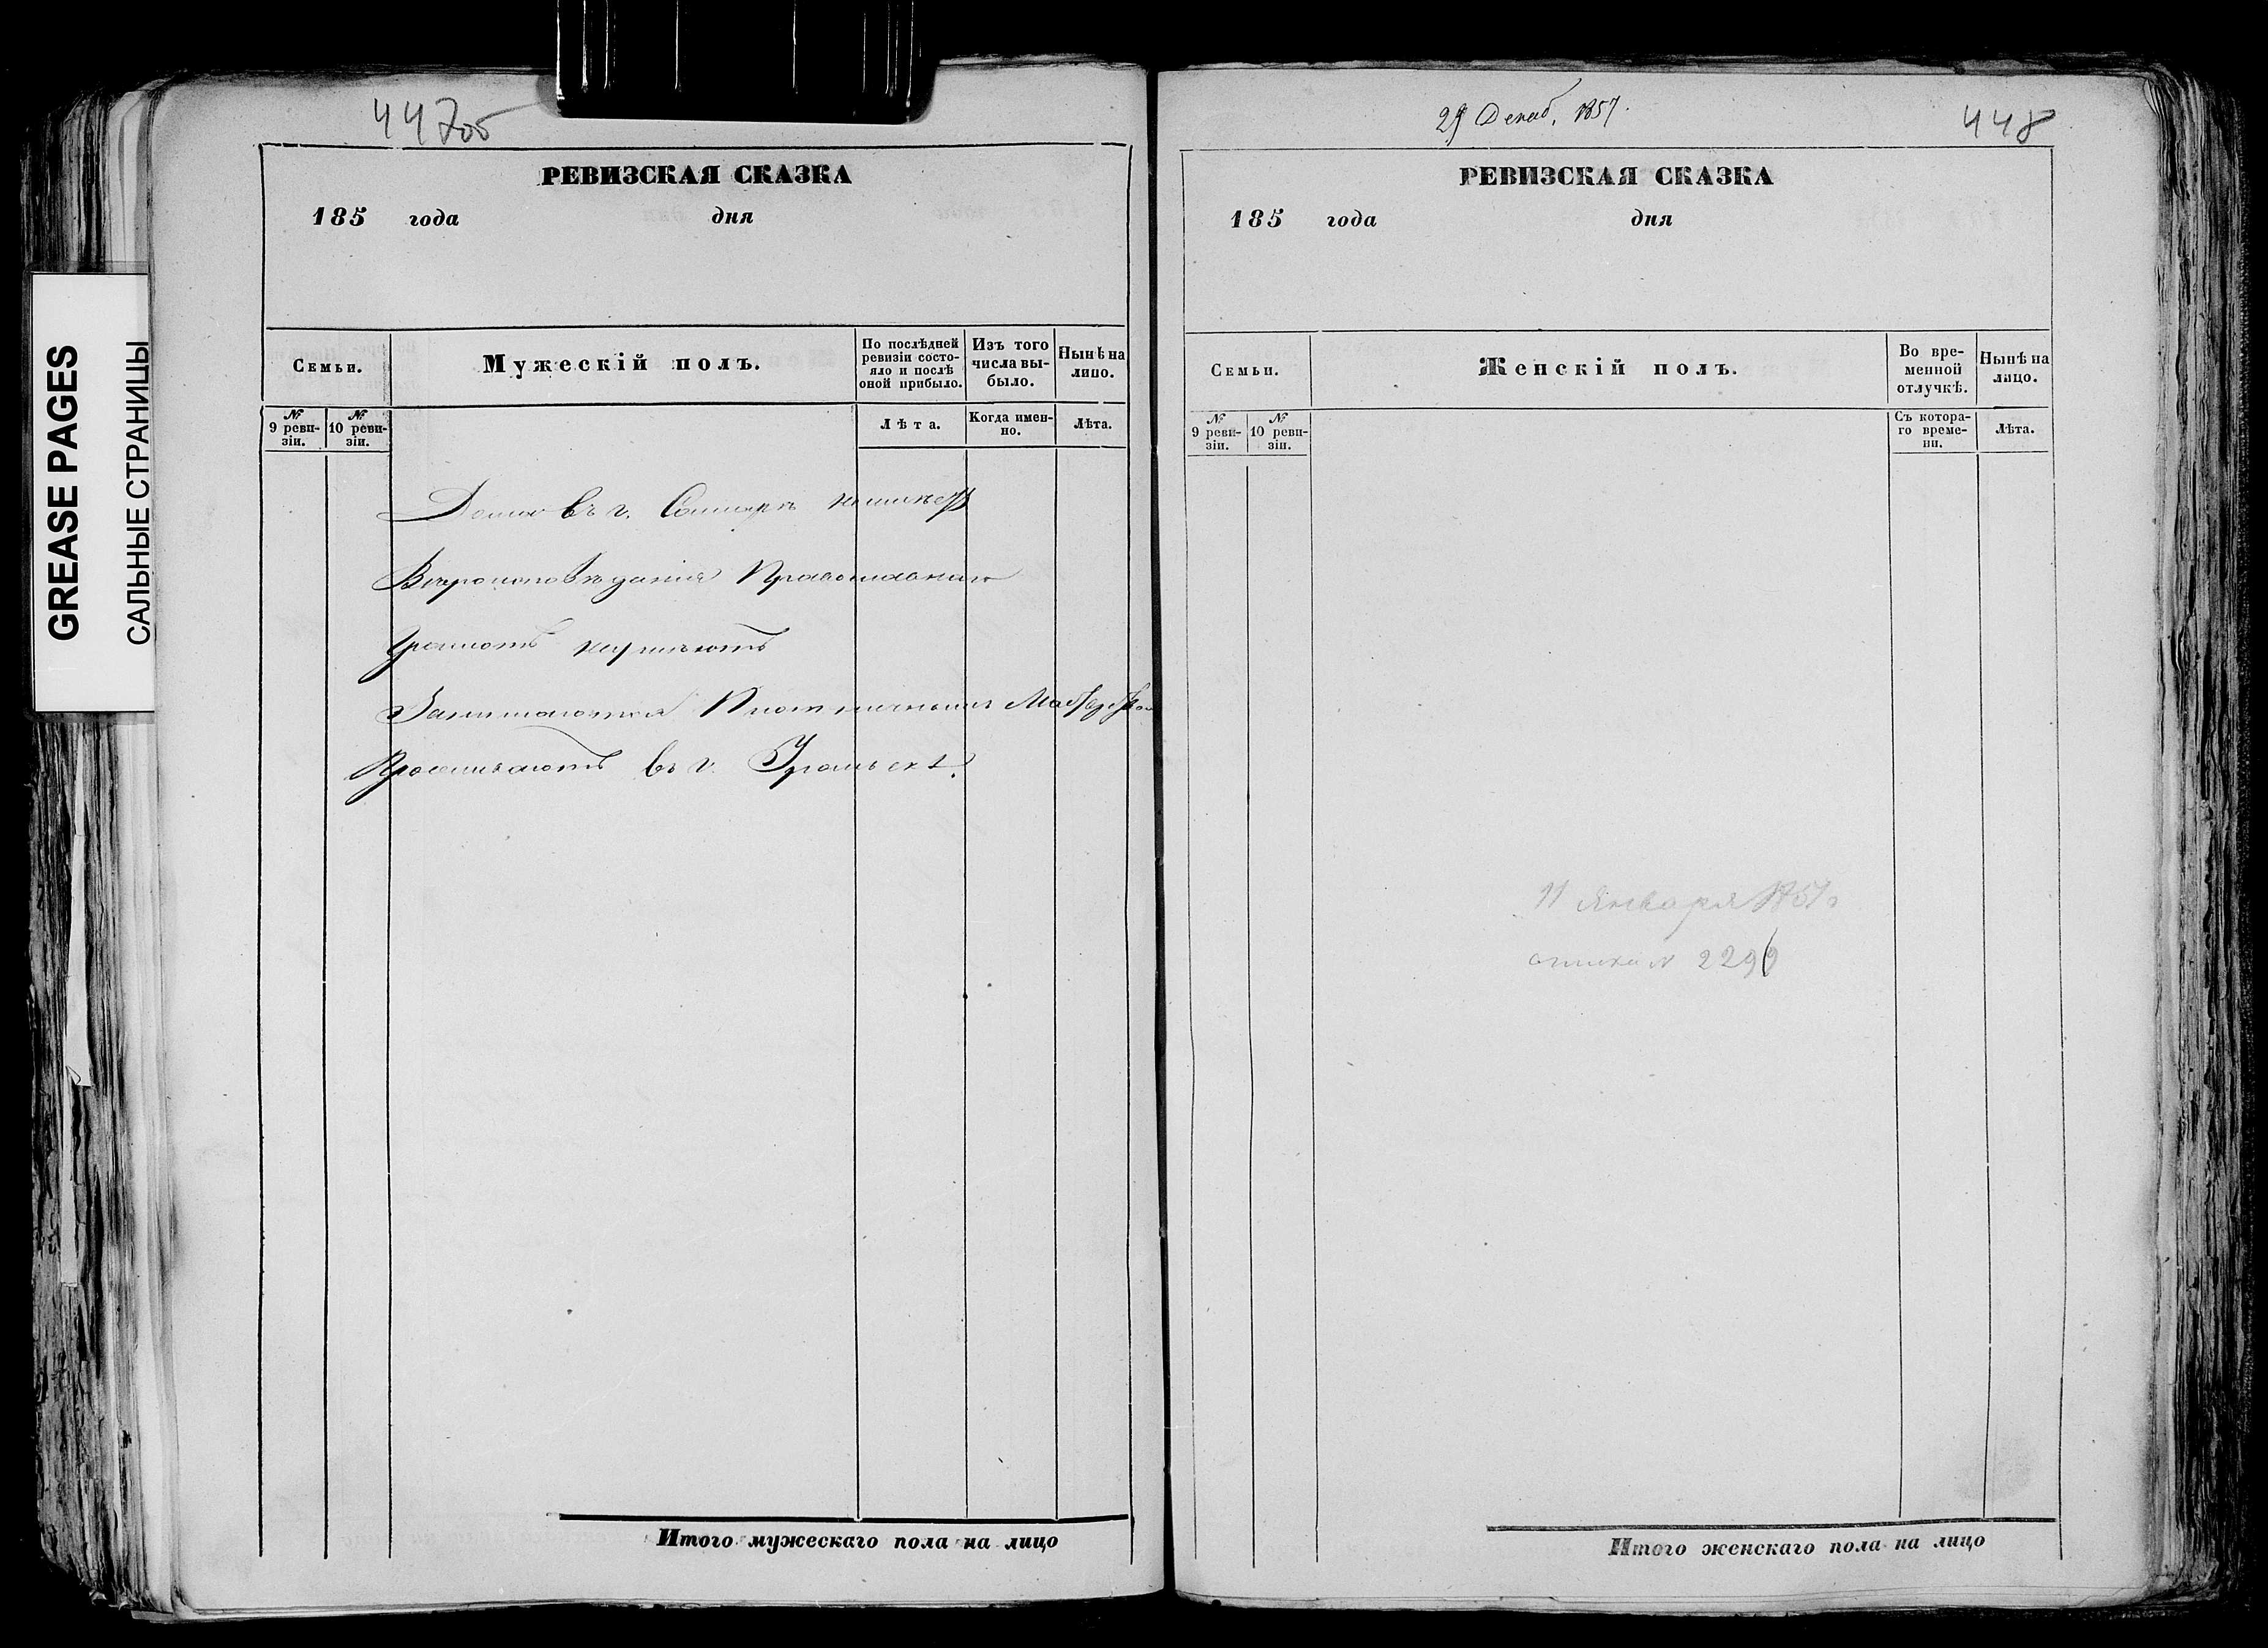 GREASE PAGES
САЛЬНЫЕ СТРАНИЦЫ
447об
РЕВИЗСКАЯ СКАЗКА
185 года дня
Семьи.
Мужескій полъ.
По послѣдней ревизіи состо-
яло и послѣ оной прибыло.
Изъ того числа вы-
было.
Нынѣ на лицо.
№ 9 реви-
зіи.
№ 10 реви-
зіи.
Лѣта.
Когда имен-
но.
Лѣта.
Дома въ г. Самарѣ неимѣетъ
Вѣроисповѣданія Православнаго
Грамотѣ неумѣютъ
Занимаются Плотничнымъ
Проживаютъ въ г. Уральскѣ.
Итого мужескаго пола на лицо
29 Декаб. 1857.
448
РЕВИЗСКАЯ СКАЗКА
185 года дня
Семьи.
Женскій полъ.
Во вре-
менной
отлучкѣ.
Нынѣ на
лицо.
№ 9 реви-
зіи.
№ 10 реви-
зіи.
Съ котора-
го време-
ни.
Лѣта.
11 Января
229
Итого женскаго пола на лицо